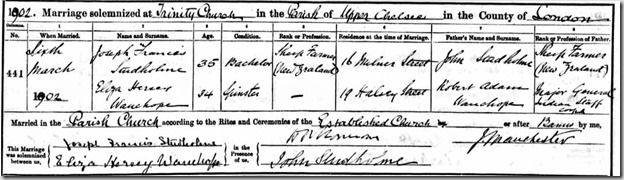 1902. Marriage solemnized at Trinity Church in the Parish of Upper Chelsea in the County of London
No. When Married. Name and Surname. Age. Condition. Rank or Profession. Residence at the time of Marriage. Father's Name and Surname. Rank or Profession of Father.
441 Sixth March 1902 Joseph Francis Studholme 35 Bachelor Sheep Farmer (New Zealand) 16 Milner Street John Studholme Sheep Farmer (New Zealand)
Eliza Hersey Wauchope 34 Spinster — 19 Halsey Street Robert Adam Wauchope Major General Indian Staff Corps
Married in the Parish Church according to the Rites and Ceremonies of the Established Church or after Banns by me,
This Marriage was solemnized between us, Joseph Francis Studholme Eliza Hersey Wauchope in the Presence of us, John Studholme J. Manchester